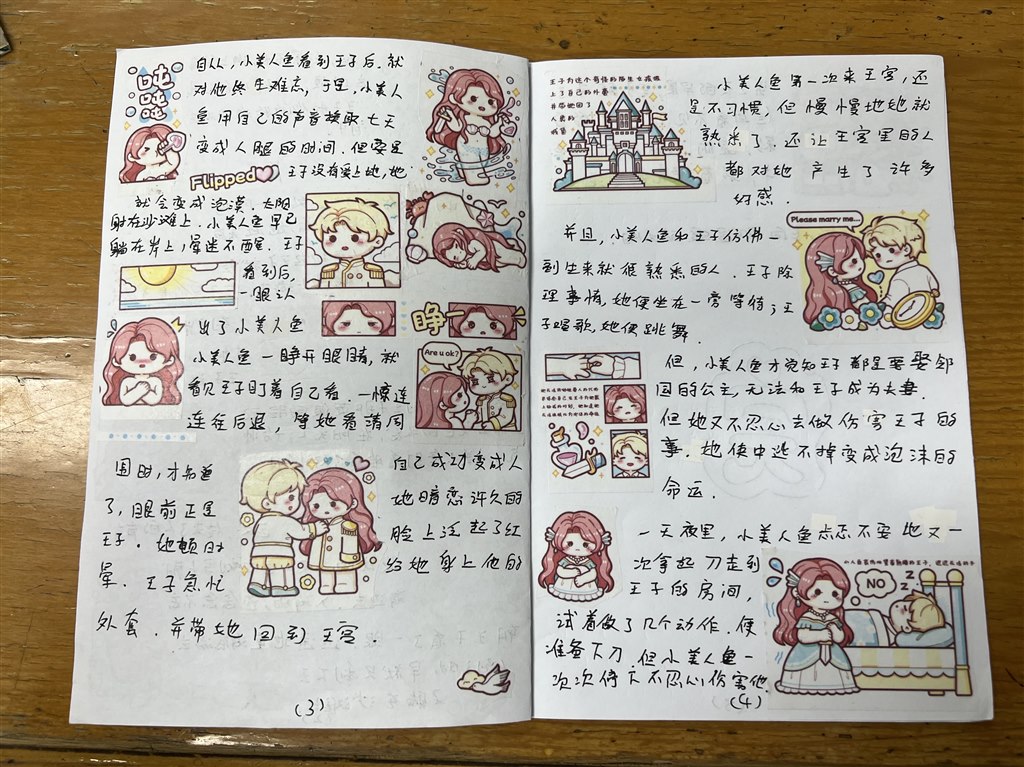 吨
吨吨
自从，小美人鱼看到王子后，就
对他终生难忘，于是，小美人
鱼用自己的声音换取七天
变成人腿的时间．但要是
Flipped
王子没有爱上她，她
就会变成泡漠．太阳
射在沙滩上．小美人鱼早已
躺在岸上，昏迷不醒．王子
看到后，
一眼认
出了小美人鱼
睁一
小美人鱼一睁开眼睛，就
看见王子盯着自己看．一惊连
连往后退，等她看清周
Are u ok?
围时，才知道
自己成功变成人
了，眼前正是
她暗恋许久的
王子．她顿时
脸上泛起了红
晕．王子急忙
给她身上他的
外套．并带她回到王宫
(3)
王子为这个奇怪的陌生女孩披
上了自己的外套
并带她回了
小美人鱼第一次来王宫，还
是不习惯，但慢慢地她就
熟悉了．还让王宫里的人
都对她产生了许多
好感．
Please marry me...
并且，小美人鱼和王子仿佛一
到生来就很熟悉的人．王子除
理事情，她便坐在一旁等待；王
子唱歌，她便跳舞
但，小美人鱼才觉知王子都是要娶邻
国的公主，无法和王子成为夫妻．
但她又不忍心去做伤害王子的
事．她使中逃不掉变成泡沫的
命运．
一天夜里，小美人鱼忐忑不安地又一
次拿起刀走到
王子的房间，
试着做了几个动作．便
准备下刀．但小美人鱼一
次次停下不忍心伤害他
NO
z z z
(4)